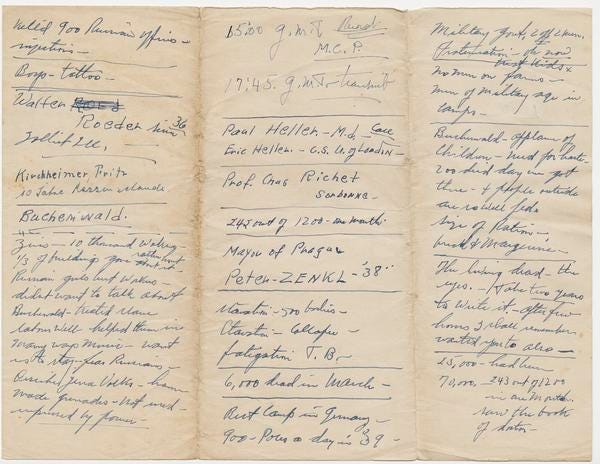 killed 900 Russian officers -
injections -
Boys - tattoo -
Walter
Roeder since 36
Kirchheimer, Fritz
10 Jahre Rassenschande
Buchenwald.
Zeiss - 10 thousand working -
1/3 of buildings gone
Russian girls
didn't want to talk about
Buchenwald - treated slave
labor well - helped them in
many ways
to stay - fear Russians -
made grenades - not used -
impressed by power -
15:00 G.M.T.
M.C.P.
17:45 G.M.T. - transmit
Paul Heller - M.d.
Eric Heller - C.S. U. of London -
Prof. Chas Richet
Sorbonne -
242 out of 1200 - one month
Mayor of Prague
Peter - ZENKL - '38"
Starvation - 500 bodies -
Starvation - collapse -
fatigation T.B. -
6,000 dead in March -
Best Camp in Germany -
900 - a day in '39 -
Military Govt,
Fraternization -
kids
No men on farms -
men of military age in
camps -
Buchenwald - off plane of
children -
200 died day we got
there - & people outside
are so well fed
size of ration -
bread & Margarine -
The living dead - the
eyes. - take two years
to write it, - after few
hours I shall remember
wanted you to also -
25,000 - had been
70,000, 243 out of 1200
in one month.
saw the book
of